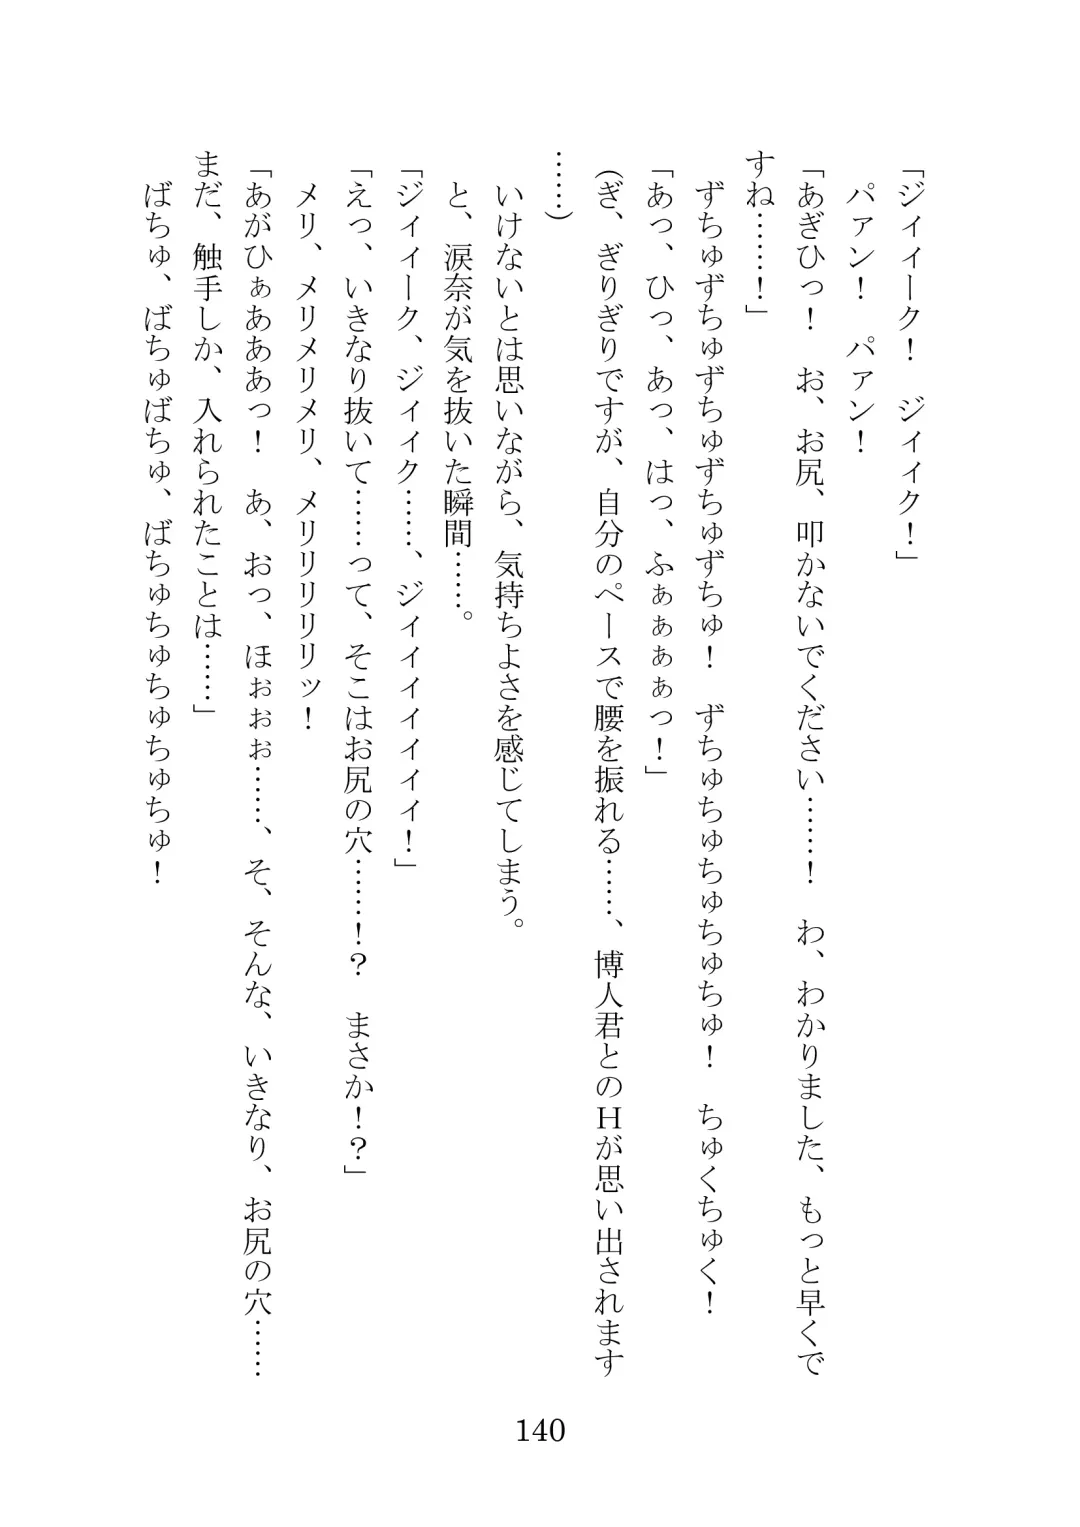 「ジィィーク！　ジィィク！」
パァン！　パァン！
「あぎひっ！　お、お尻、叩かないでください……！　わ、わかりました、もっと早くで
すね……！」
ずちゅずちゅずちゅずちゅずちゅ！　ずちゅちゅちゅちゅちゅ！　ちゅくちゅく！
「あっ、ひっ、あっ、はっ、ふぁぁぁぁっ！」
(ぎ、ぎりぎりですが、自分のペースで腰を振れる……、博人君とのＨが思い出されます
……)
いけないとは思いながら、気持ちよさを感じてしまう。
と、涙奈が気を抜いた瞬間……。
「ジィィーク、ジィィク……、ジィィィィィィ！」
「えっ、いきなり抜いて……って、そこはお尻の穴……！？　まさか！？」
メリ、メリメリメリ、メリリリリリッ！
「あがひぁあああっ！　あ、おっ、ほぉぉぉ……、そ、そんな、いきなり、お尻の穴……
まだ、触手しか、入れられたことは……」
ばちゅ、ばちゅばちゅ、ばちゅちゅちゅちゅちゅ！
140